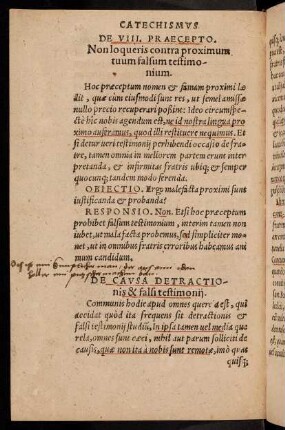 CATECHISMVS
DE VIII. PRAECEPTO.
Non loqueris contra proximum
tuum falsum testimo-
nium.
Hoc præceptum nomen & famam proximi læ
dit, quæ cùm eiusmodi sunt res, ut semel amissæ
nullo precio recuperari poßint: Ideo circumspe-
ctè hîc nobis agendum est, ne id nostra lingua pro
ximo auferamus, quod illi restituere nequimus. Et
si detur ueri testimonij perhibendi occasio de fra-
tre, tamen omnia in meliorem partem erunt inter
pretanda, & infirmitas fratris ubiq; & semper
quocunq; tandem modo ferenda.
OBIECTIO. Ergo malefacta proximi sunt
iustificanda & probanda?
RESPONSIO. Non. Etsi hoc præceptum
prohibet falsum testimonium, interim tamen non
iubet, ut malefacta probemus, sed simpliciter mo-
net, ut in omnibus fratris erroribus habeamus ani
mum candidum.
DE CAVSA DETRACTIO-
nis & falsi testimonij.
Communis hodie apud omnes querela est, quî
accidat quòd ita frequens sit detractionis &
falsi testimonij studiũ, In ipsa tamen uel media quæ
rela, omnes sunt cæci, nihil aut parum solliciti de
causis, quæ non ita à nobis sunt remotæ, imò quæ
quisq;